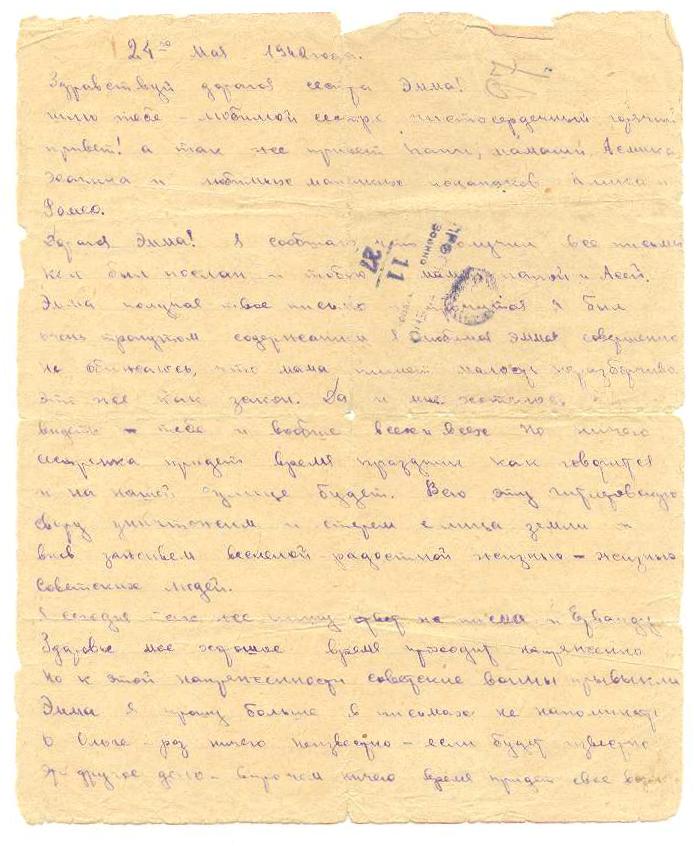 24го мая 1942 года.
Здравствуй дорогая сестра Эмма!
шлю тебе – любимой сестре чистосердечный горячий
привет! а так же привет папе, мамаше, Асмика
и любимых маленьких и
Ромео.
Дорогая Эмма! Я сообщаю, что получил все письма
кем был послан и тобою мамой папой и Асей.
Эмма получая твое письмо я был
очень тронутом содержанием я любимая Эмма совершенно
не обижаюсь, что мама пишет малость неразборчиво
это же как закон. Да и мне хотелось
видеть – тебе и вообще всех и всех но ничего
сестренка придет время праздник как говорится
и на нашей улице будет. Всю эту гитлеровскую
свору уничтожим и сотрем с лица земли и
вновь заживем веселой радостной жизнью – жизнью
советских людей.
Я сегодня так же пишу ответ на письма и Ерванду
Здоровье мое хорошое время проходит напряженно
но к этой напряженности советские воины привыкли
Эмма я прошу больше в письмах не напоминать
о Ольге – раз ничего неизвестно – если будет известно
это другое дело – впрочем ничего время придет свое
11
27